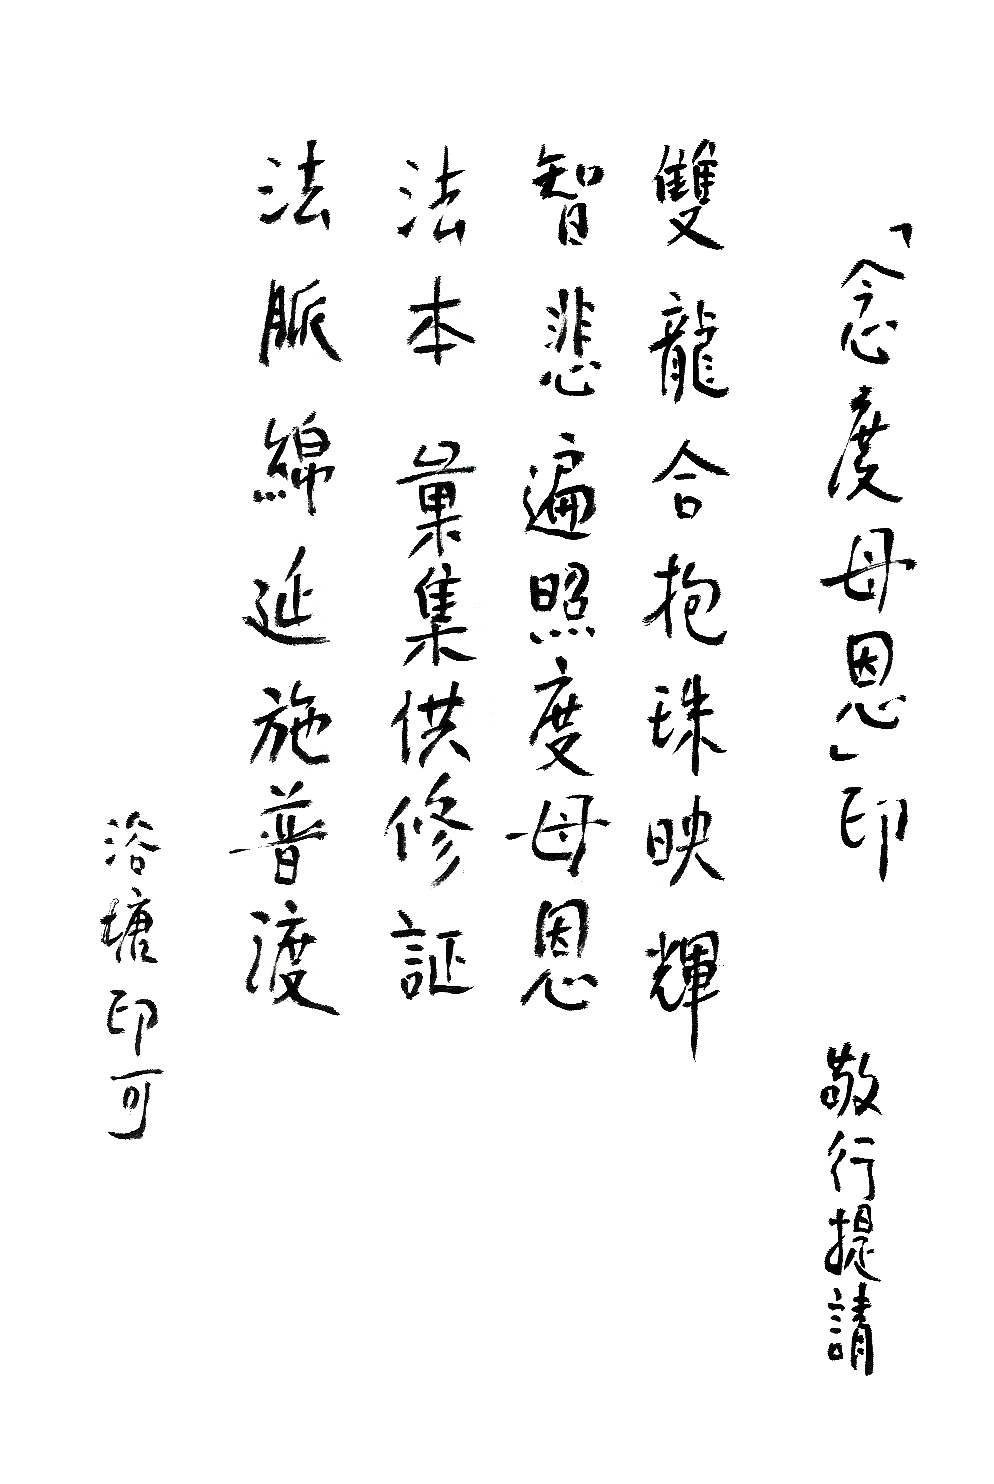 「念度母恩」印　敬行提請
雙龍合抱珠映輝
智悲遍照度母恩
法本彙集供修証
法脈綿延施普渡
浴塘印可